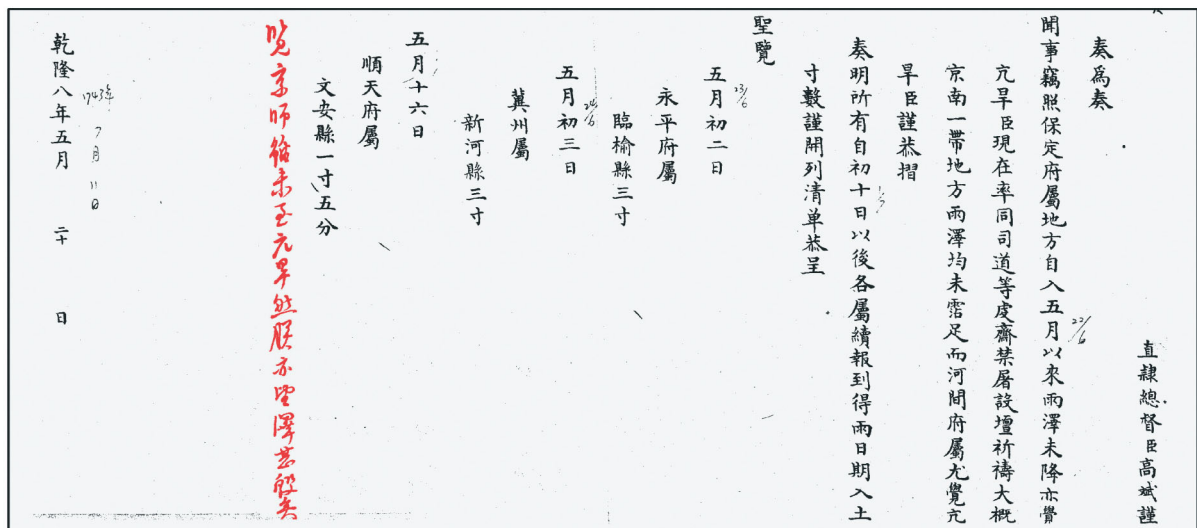 直隸總督臣高斌謹
奏爲奏
聞事竊照保定府屬地方自入五月以來雨澤未降亦覺
22/6
亢旱臣現在率同司道等虔齋禁屠設壇祈禱大概
京南一帶地方雨澤均未霑足而河間府屬尤覺亢
旱臣謹恭摺
奏明所有自初十日以後各屬續報到得雨日期入土
1/7
寸數謹開列清单恭呈
聖覽
五月初二日
23/6
永平府屬
臨榆縣三寸
五月初三日
24/6
冀州屬
新河縣三寸
五月十六日
順天府屬
文安縣一寸五分
览京師雖未至亢旱然朕亦望澤甚殷矣
乾隆八年五月 二十 日
1743年 7月 11日